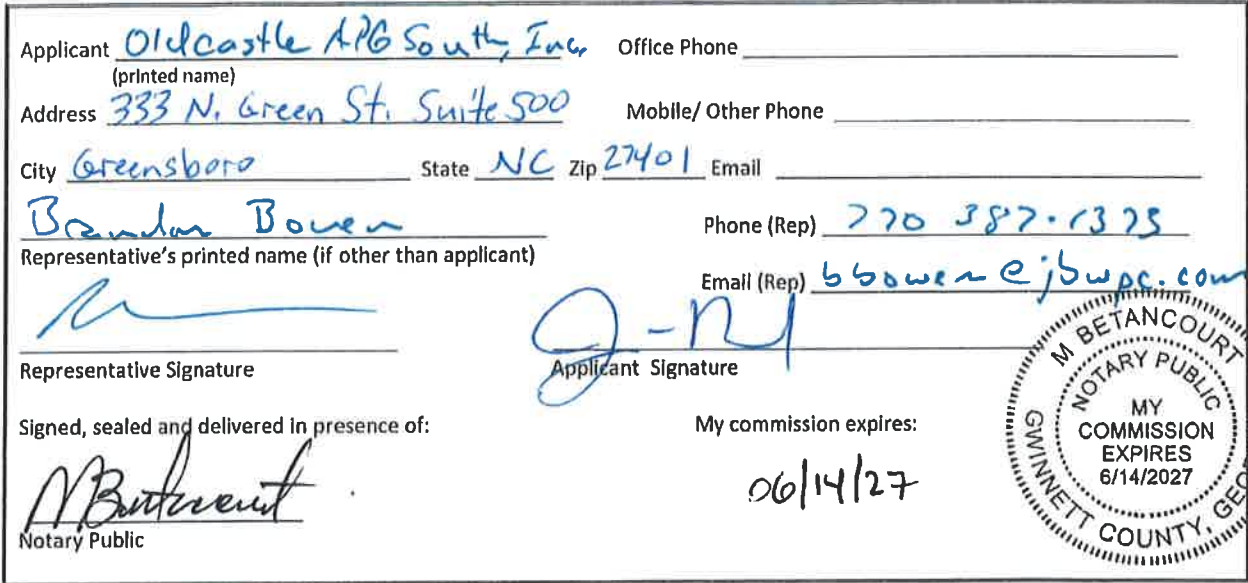 Applicant Oldcastle APG South, Inc, Office Phone
(printed name)
Address 333 N. Green St. Suite 500 Mobile/ Other Phone
City Greensboro State NC Zip 27401 Email
Brandon Bowen Phone (Rep) 770 387-1373
Representative's printed name (if other than applicant)
Email (Rep) bbowen@jbwpc.com
Representative Signature Applicant Signature
Signed, sealed and delivered in presence of: My commission expires:
06/14/27
Notary Public
M BETANCOURT
NOTARY PUBLIC
MY
COMMISSION
EXPIRES
6/14/2027
GWINNETT COUNTY, GEO